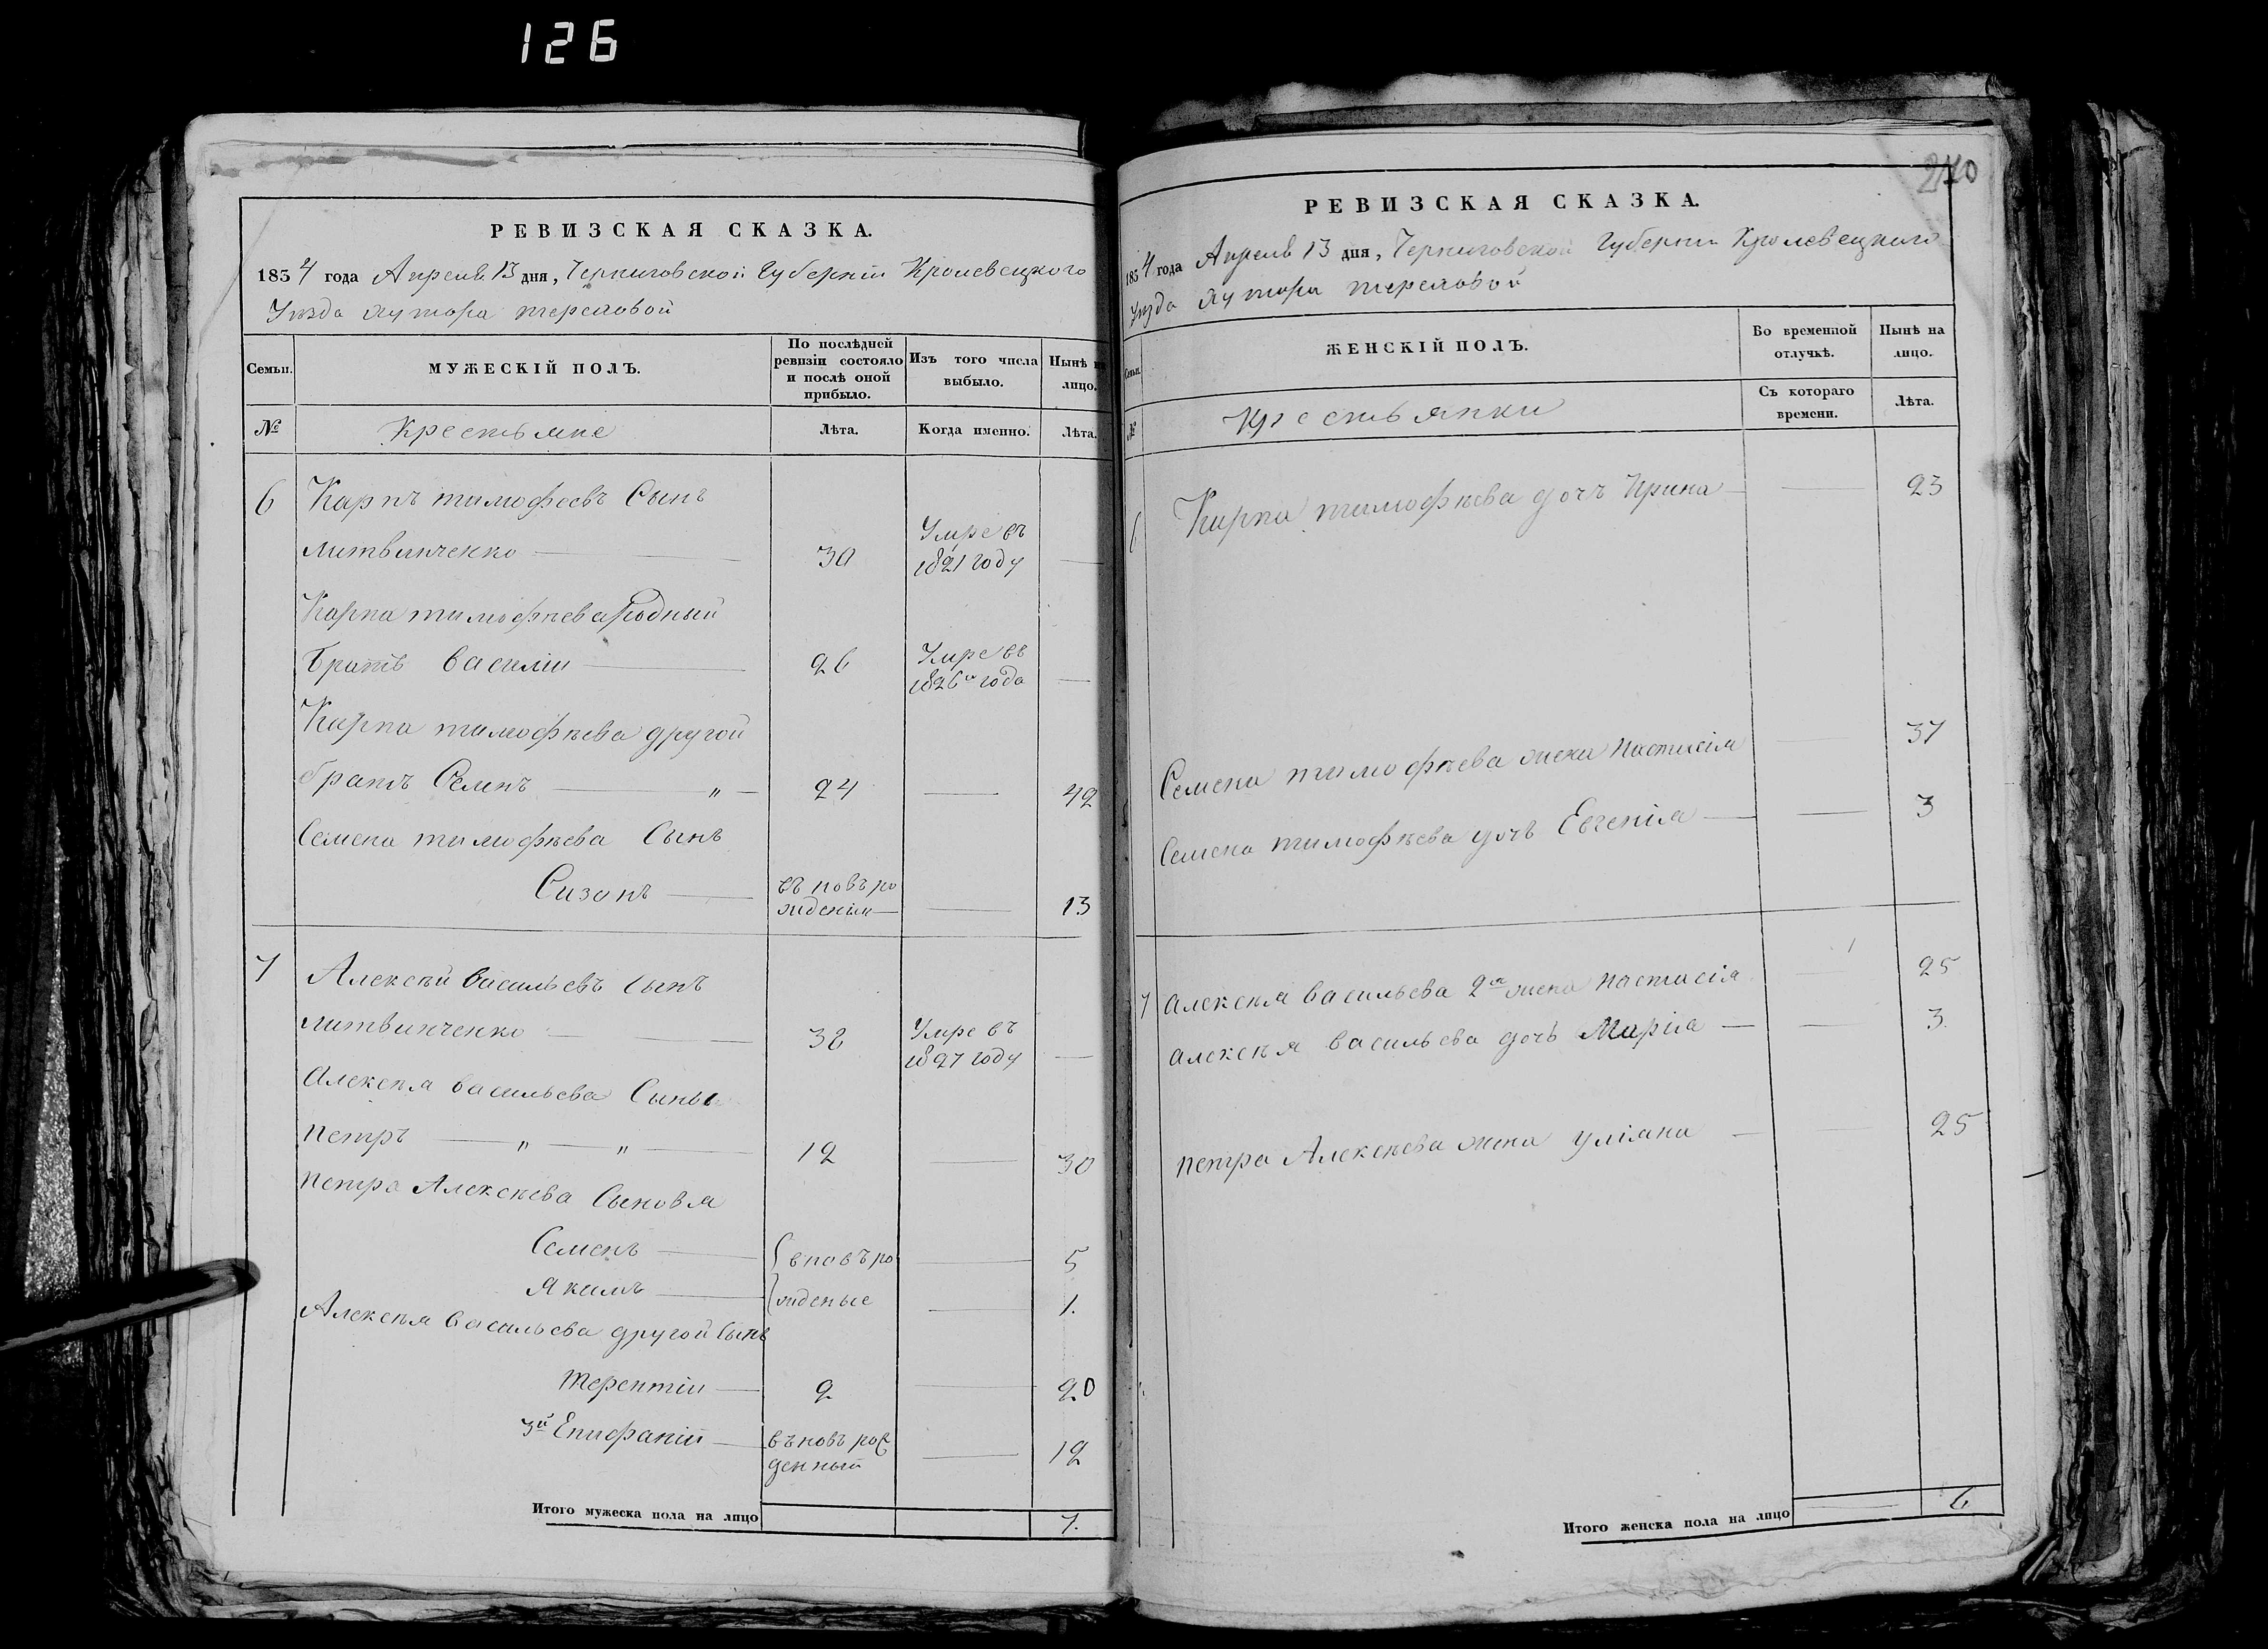 126
РЕВИЗСКАЯ СКАЗКА.
1834 года Апреля 13 дня, Черниговской Губерніи Кролевецкого
Уѣзда хутора терновой
Семьи.
МУЖЕСКІЙ ПОЛЪ.
По послѣдней ревизіи состояло и послѣ оной прибыло.
Изъ того числа выбыло.
Нынѣ на лицо.
№
Крестьяне
Лѣта.
Когда именно.
Лѣта.
6 Карпъ тимофеевъ Сынъ
литвинченко — 30 Умре въ 1821 году —
Карпа тимофѣева родный
братъ василіи — 26 Умре въ 1826м года —
Карпа тимофѣева другой
братъ Семенъ — " — 24 — 42
Семена тимофѣева Сынъ
Сизонъ — въ новъ рожденіи — — 13
7 Алексѣй васильевъ Сынъ
литвинченко — 38 Умре въ 1827 году —
Алексѣя васильева Сыны
петръ — " — " — 12 — 30
петра Алексѣева Сыновя
Семенъ — вновъ ро — 5
якимъ — жденые — 1.
Алексѣя васильева другой Сынъ
терентіи — 2 — 20
3й Епифаній — въновъ рожденный — 12
Итого мужеска пола на лицо 7.
240
РЕВИЗСКАЯ СКАЗКА.
1834 года Апреля 13 дня, Черниговской Губерніи Кролевецкого
Уѣзда хутора терновой
Семьи.
ЖЕНСКІЙ ПОЛЪ.
Во временной отлучкѣ.
Нынѣ на лицо.
№
Крестьянки
Съ котораго времени.
Лѣта.
6 Карпа тимофѣева дочъ Ирина — — 23
Семена тимофѣева жена настасія — 37
Семена тимофѣева дочъ Евгенія — — 3
7 алексѣя васильева 2я жена настасія — 25
алексѣя васильева дочъ Марія — — 3.
петра Алексѣева жена уліяна — — 25
Итого женска пола на лицо — 6